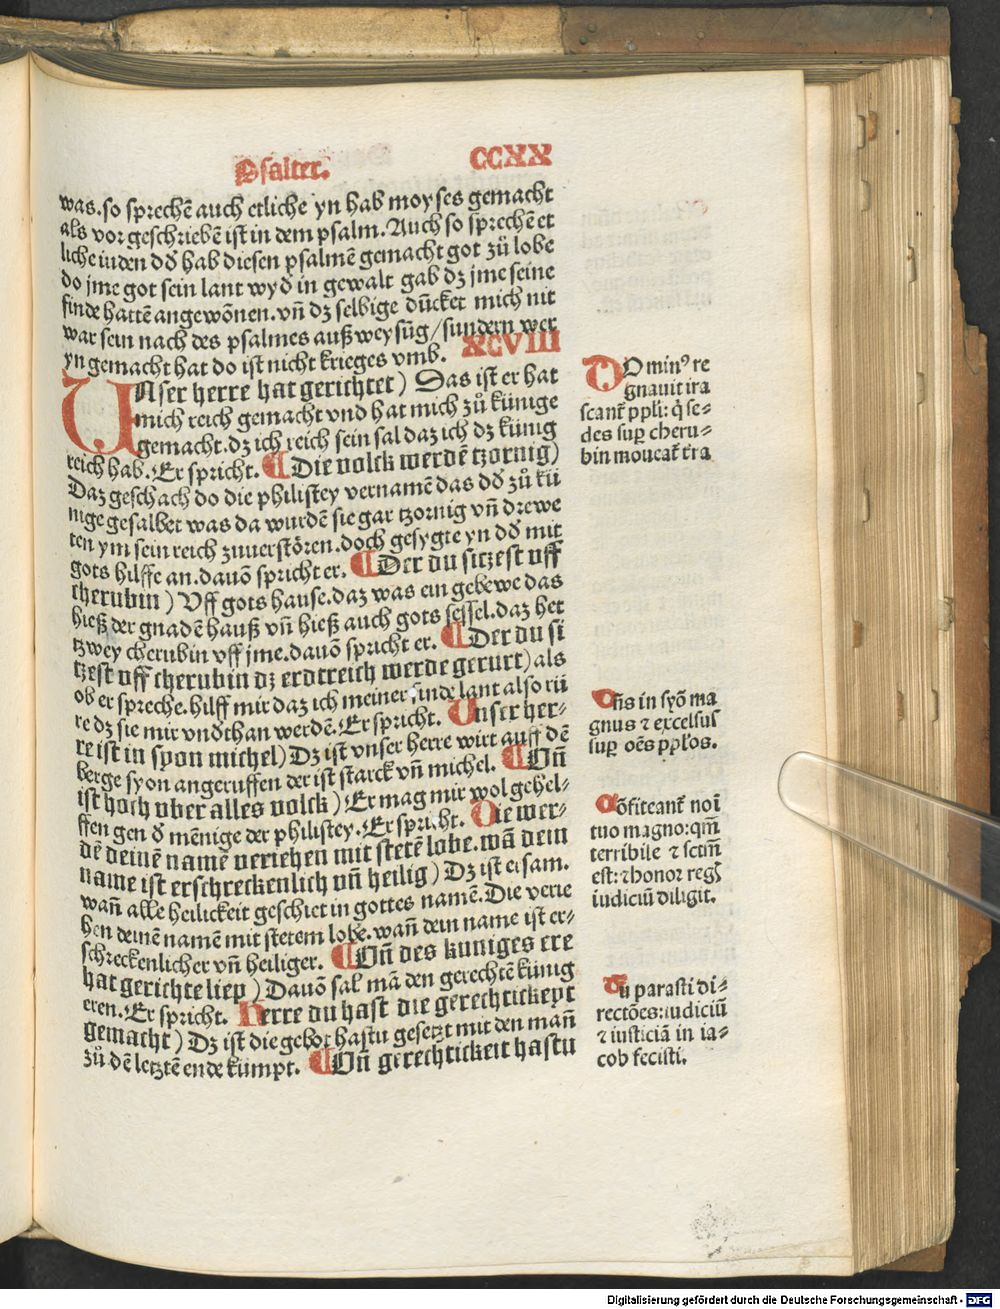 Psalter. CCXX
was. so sprechē auch etliche yn hab moyses gemacht
als vor geschriebē ist in dem psalm. Auch so sprechē et
liche iuden dď hab diesen psalmē gemacht got zů lobe
do jme got sein lant wyď in gewalt gab dz jme seine
finde hattē angewōnen. vñ dz selbige dūcket mich nit
war sein nach des psalmes auß weysūg / sundern wer
yn gemacht hat do ist nicht krieges vmb. XCVIII
Unser herre hat gerichtet) Das ist er hat
mich reich gemacht vnd hat mich zů künige
gemacht. dz ich reich sein sal daz ich dz künig
reich hab. Er spricht. ¶ Die volck werdē tzornig)
Daz geschach do die philistey vernamē das dď zů kü
nige gesalbet was da wurdē sie gar tzornig vñ drewe
ten ym sein reich zuuerstören. doch gesygte yn dď mit
gots hilffe an. dauō spricht er. ¶ Der du sitzest vff
cherubin) Vff gots hause. daz was ein gebewe das
hieß der gnadē hauß vñ hieß auch gots sessel. daz het
tzwey cherubin vff jme. dauō spricht er. ¶ Der du si
tzest vff cherubin dz erdtreich werde gerurt) als
ob er spreche. hilff mir daz ich meiner finde lant also rü
re dz sie mir vndthan werdē. Er spricht. Unser her-
re ist in syon michel) Dz ist vnser herre wirt auff dē
berge syon angeruffen der ist starck vñ michel. ¶ Vñ
ist hoch vber alles volck) Er mag mir wol gehel-
ffen gen ď mēnige der philistey. Er spricht. Die wer-
dē deinē namē veriehen mit stetē lobe. wā dein
name ist erschreckenlich vñ heilig) Dz ist eisam.
wañ alle heilickeit geschiet in gottes namē. Die verie
hen deinē namē mit stetem lobe. wañ dein name ist er-
schreckenlicher vñ heiliger. ¶ Vñ des kuniges ere
hat gerichte liep) Dauō sal mā den gerechtē künig
eren. Er spricht. Herre du hast die gerechtickeyt
gemacht) Dz ist die gebot hastu gesetzt mit den mañ
zů dē letztē ende kümpt. ¶ Vñ gerechtickeit hastu
DOminꝰ re
gnauit ira
scant̄ ppli: q̇ se-
des suꝑ cheru-
bin moueat̄ t̄ra
Dñs in syō ma
gnus ⁊ excelsus
suꝑ oēs pplos.
Cōfiteant̄ noī
tuo magno: qm̄
terribile ⁊ sctm̄
est: ⁊ honor regꝭ
iudiciū diligit.
Tu parasti di-
rectōes: iudiciū
⁊ iusticiā in ia-
cob fecisti.
Digitalisierung gefördert durch die Deutsche Forschungsgemeinschaft - DFG